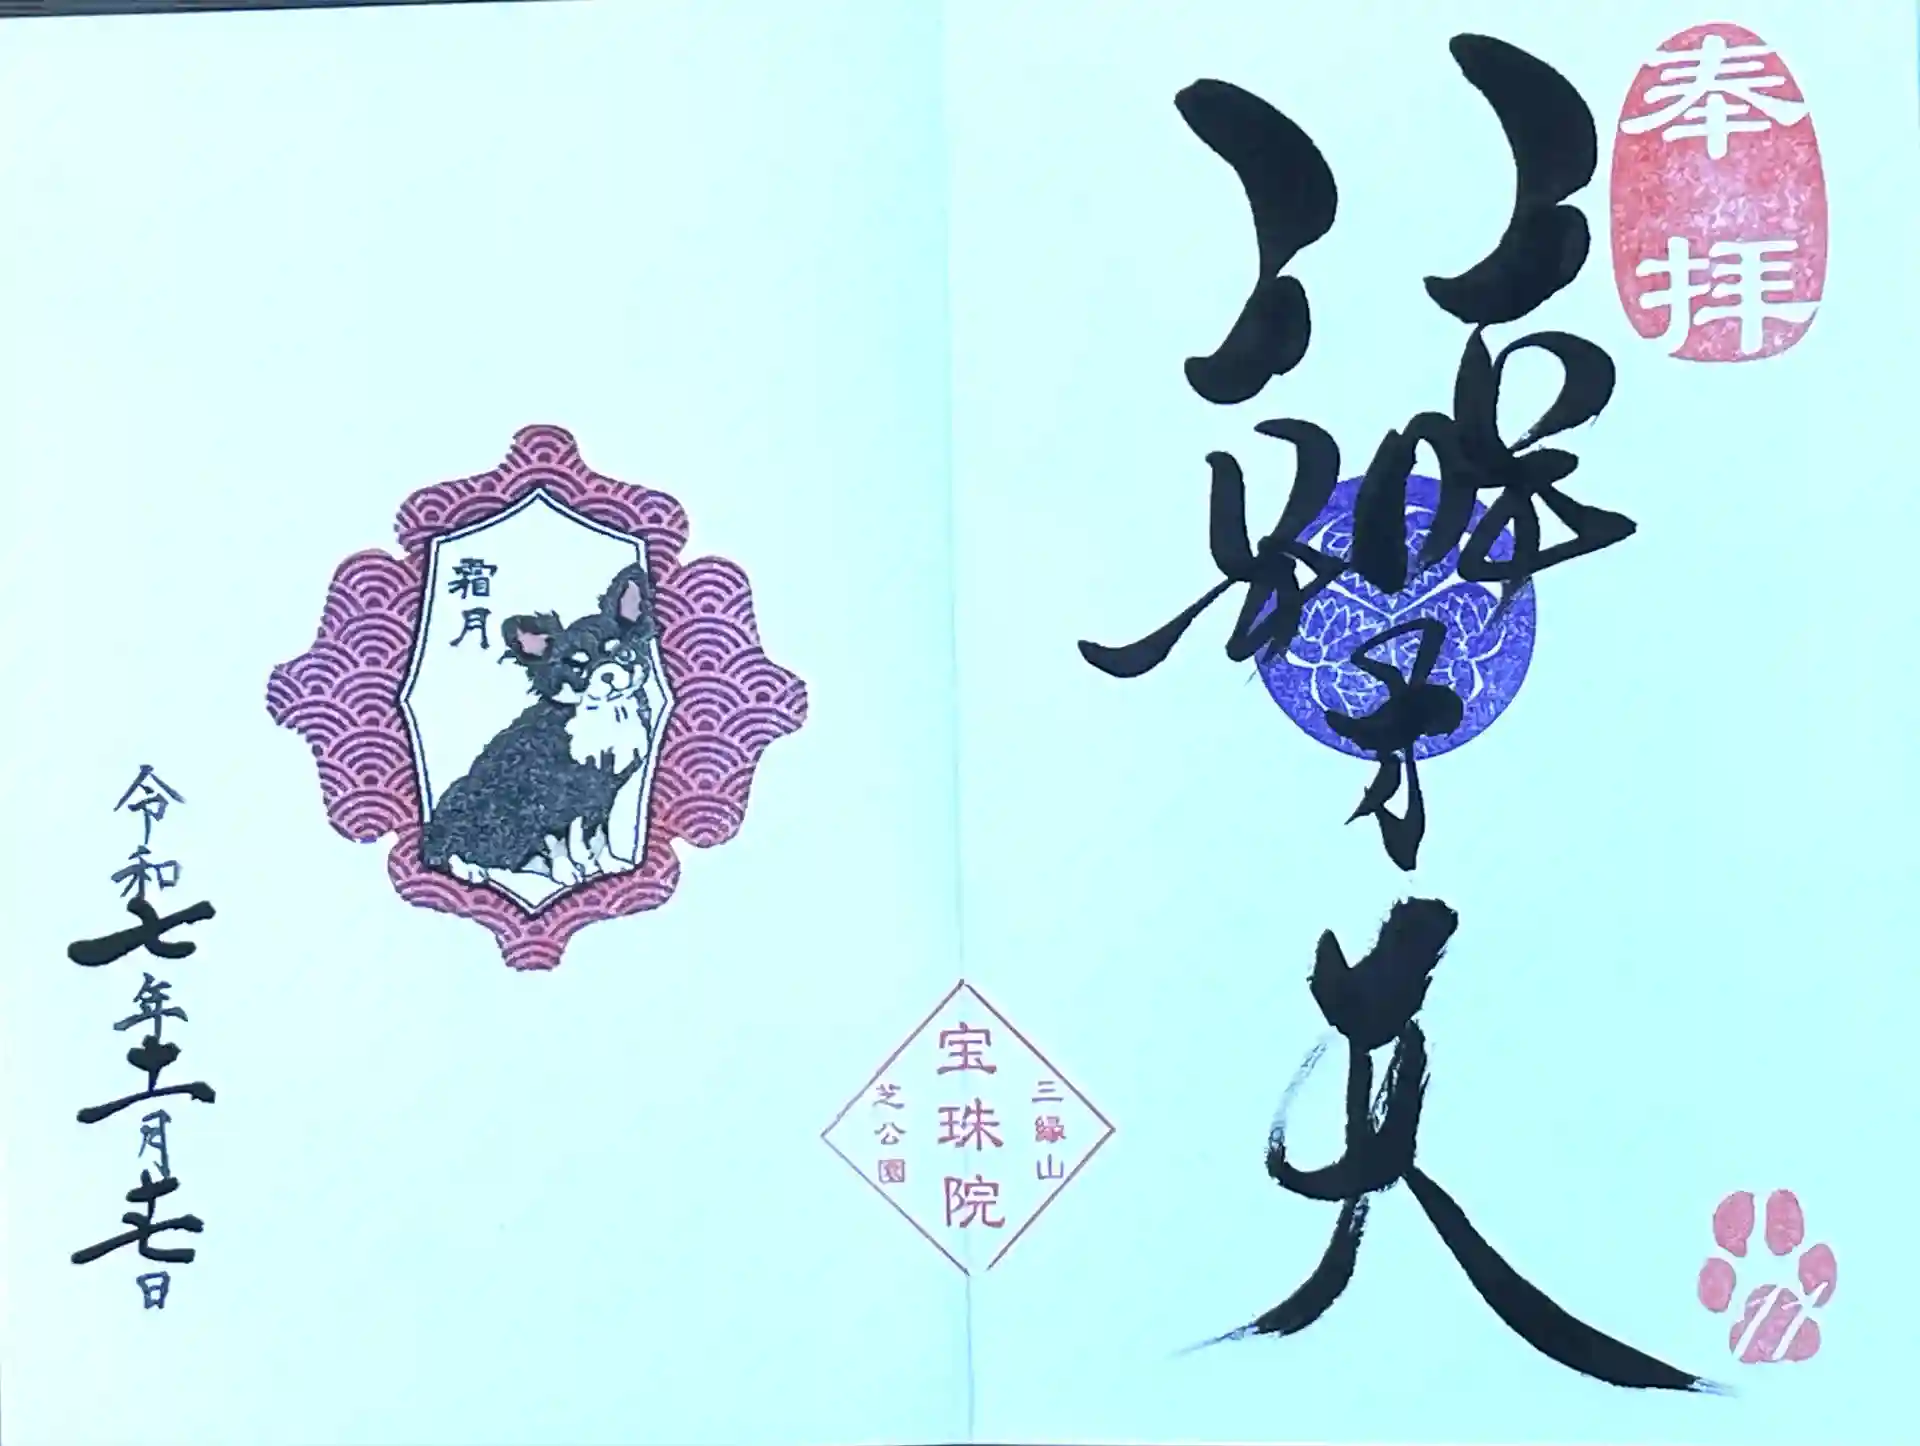 奉拝
三縁山
宝珠院
芝公園
霜月
令和七年十一月十七日
17